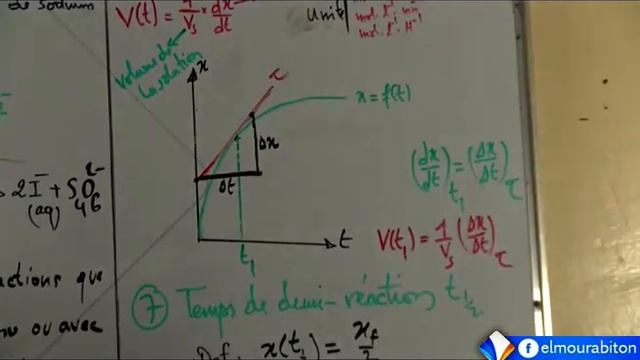 de sodium
V(t) = 1/Vs × dx/dt
Unité
mol. L⁻¹. mn⁻¹
mol. L⁻¹. H⁻¹
volume de
la solution
x
τ
x = f(t)
Δx
Δt
t₁
t
(dx/dt)t₁ = (Δx/Δt)τ
V(t₁) = 1/Vs (Δx/Δt)τ
2I⁻ + S₄O₆²⁻
(aq)
actions que
ou avec
⑦ Temps de demi-réaction t₁/₂
Def: x(t½) = xf/2
elmourabiton